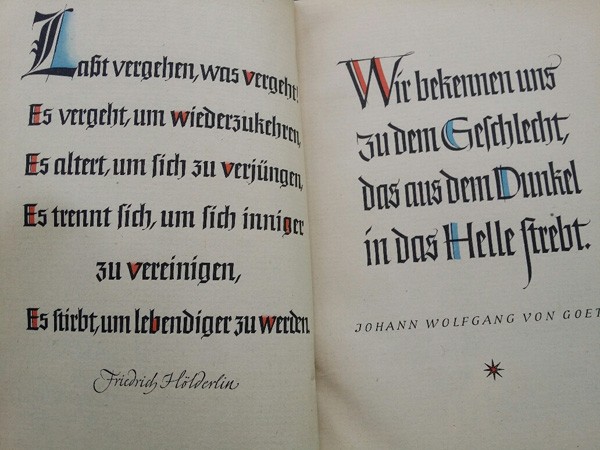 Laßt vergehen, was vergeht!
Es vergeht, um wiederzukehren,
Es altert, um sich zu verjüngen,
Es trennt sich, um sich inniger
zu vereinigen,
Es stirbt, um lebendiger zu werden.
Friedrich Hölderlin
Wir bekennen uns
zu dem Geschlecht,
das aus dem Dunkel
in das Helle strebt.
JOHANN WOLFGANG VON GOET